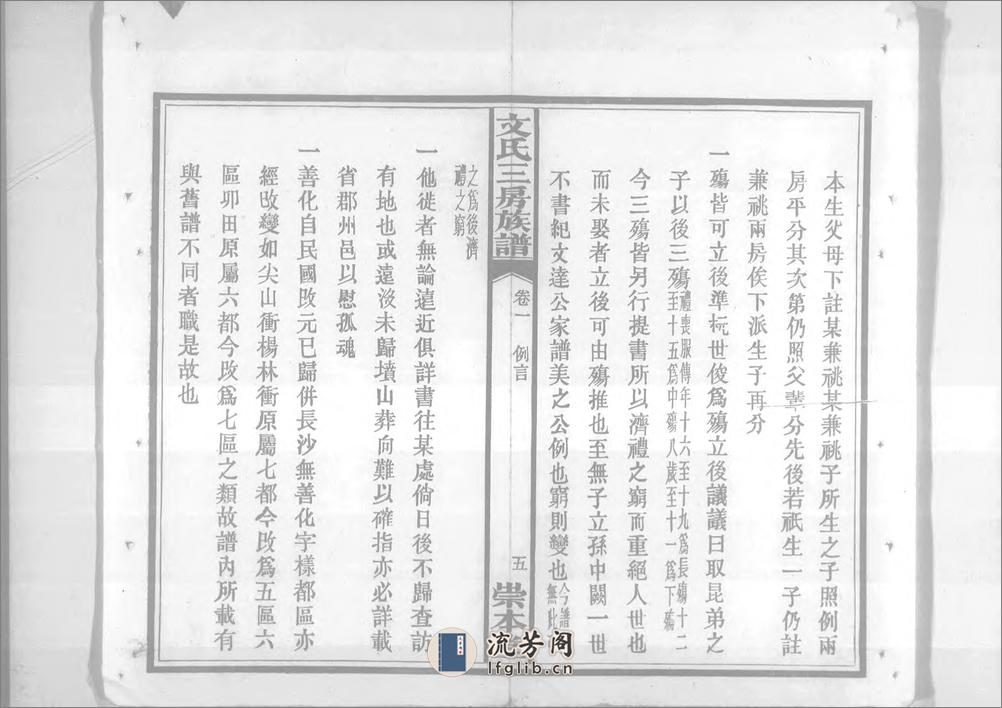 本生父母下註某兼祧某兼祧子所生之子照例兩
房平分其次第仍照父輩分先後若祇生一子仍註
兼祧兩房俟下派生子再分
一殤皆可立後準杭世俊爲殤立後議議日取昆弟之
子以後三殤禮喪服傳年十六至十九爲長殤十二至十五爲中殤八歲至十一爲下殤
今三殤皆另行提書所以濟禮之窮而重絕人世也
而未娶者立後可由殤推也至無子立孫中闕一世
不書紀文達公家譜美之公例也窮則變也今譜無此
文氏三房族譜
卷一 例言
五
崇本
之爲後濟禮之窮
一他徙者無論遠近俱詳書往某處倘日後不歸查訪
有地也或遠沒未歸墳山葬向難以確指亦必詳載
省郡州邑以慰孤魂
一善化自民國改元已歸併長沙無善化字樣都區亦
經改變如尖山衝楊林衝原屬七都今改爲五區六
區卯田原屬六都今改爲七區之類故譜內所載有
與舊譜不同者職是故也
流芳阁
lfglib.cn